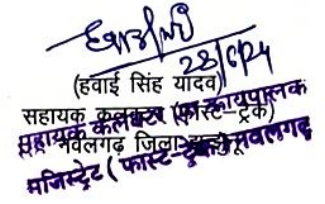 28/6/24
(हवाई सिंह यादव)
सहायक कलक्टर (फास्ट-ट्रेक)
नवलगढ़ जिला झुन्झुनू
सहायक कलक्टर एवं कार्यपालक
मजिस्ट्रेट (फास्ट-ट्रेक) नवलगढ़